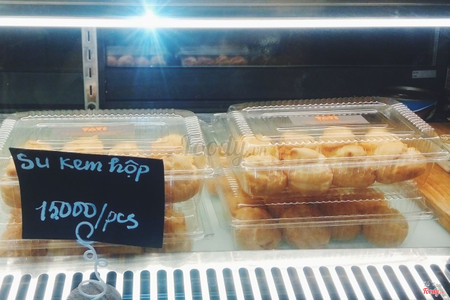 Su kem hộp
15000/pcs
Foody